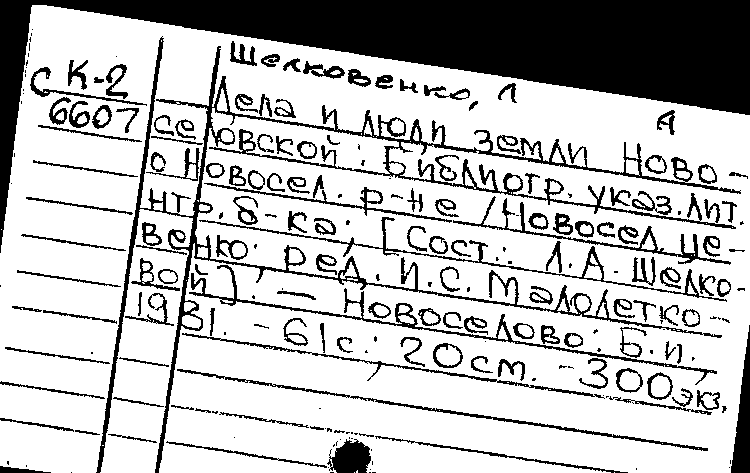 Шелковенко, Л
С К-2
6607
А
Дела и люди земли Ново-
селовской : Библиогр. указ. лит.
о Новосел. р-не / Новосел. це-
нтр. б-ка; [Сост.: Л.А. Шелко-
венко; ред. И.С. Малолетко-
вой]. — Новоселово: Б.и.,
1981. - 61с.; 20см. - 300экз.